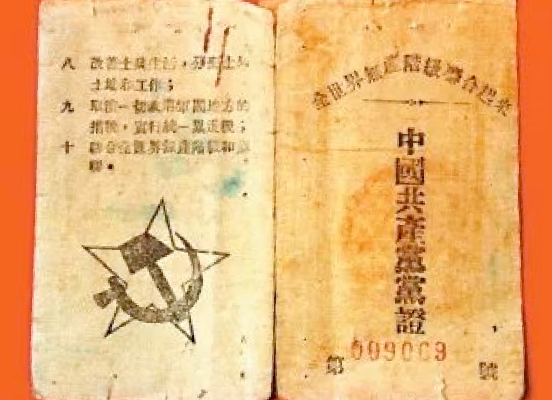 八 改善士兵生活,發給士兵
土地和工作;
九 取消一切政府軍閥地方的
捐稅,實行統一累進稅;
十 聯合全世界無產階級和蘇
聯。
全世界無產階級聯合起來
中國共產黨黨證
第 009009 號